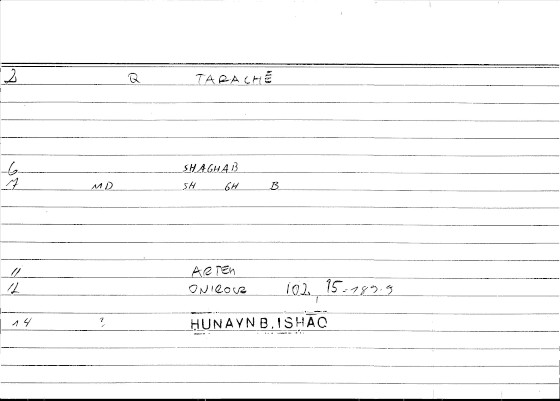 2 Q TARACHĒ
6 SHAGHAB
7 MD SH GH B
11 ARTEM
12 ONIROCR 102, 15-
14 ? HUNAYN B. ISHĀQ